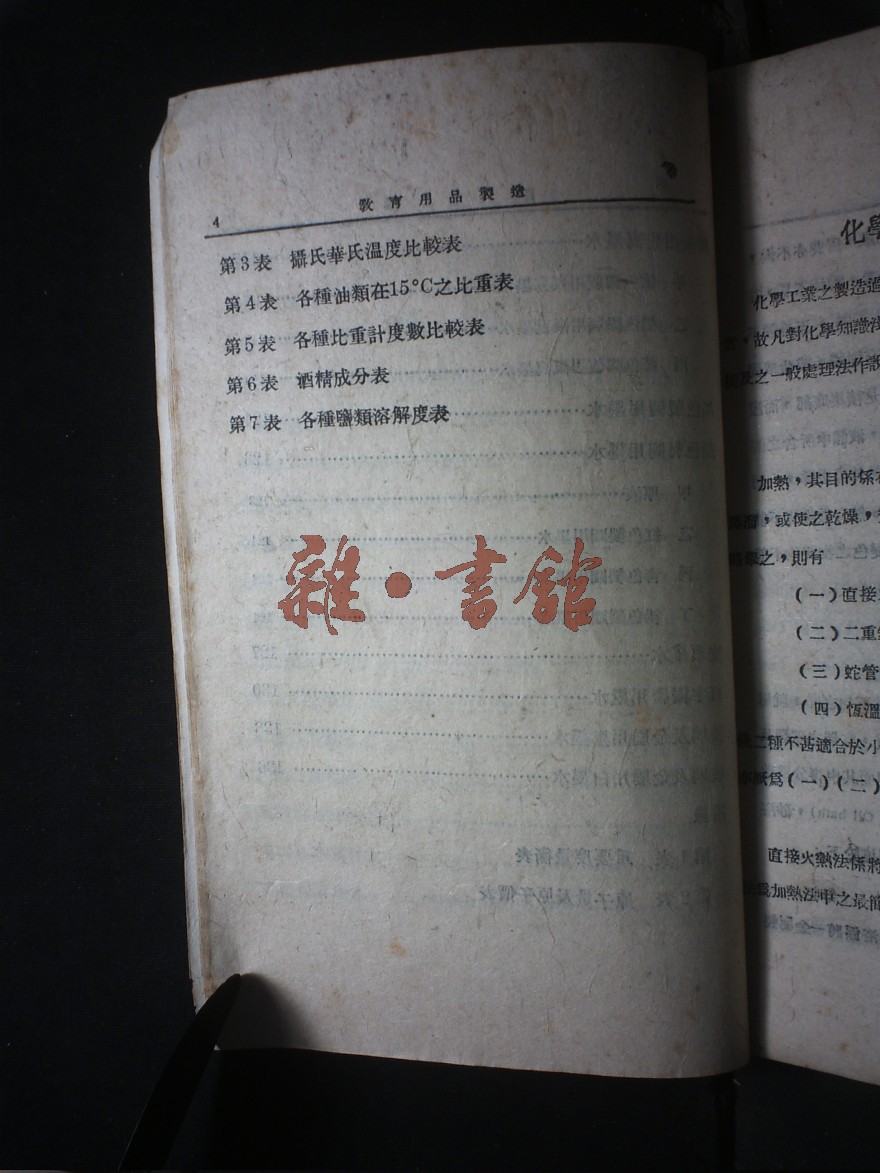 4
教育用品製造
第3表 攝氏華氏溫度比較表
第4表 各種油類在15°C之比重表
第5表 各種比重計度數比較表
第6表 酒精成分表
第7表 各種鹽類溶解度表
雜·書館
化學
化學工業之製造過
故凡對化學知識淺
之一般處理法作說
加熱，其目的係在
，或使之乾燥，
之，則有
(一)直接
(二)二重
(三)蛇管
(四)恆溫
二種不甚適合於小
爲(一)(二)
直接火熱法係將
爲加熱法中之最簡